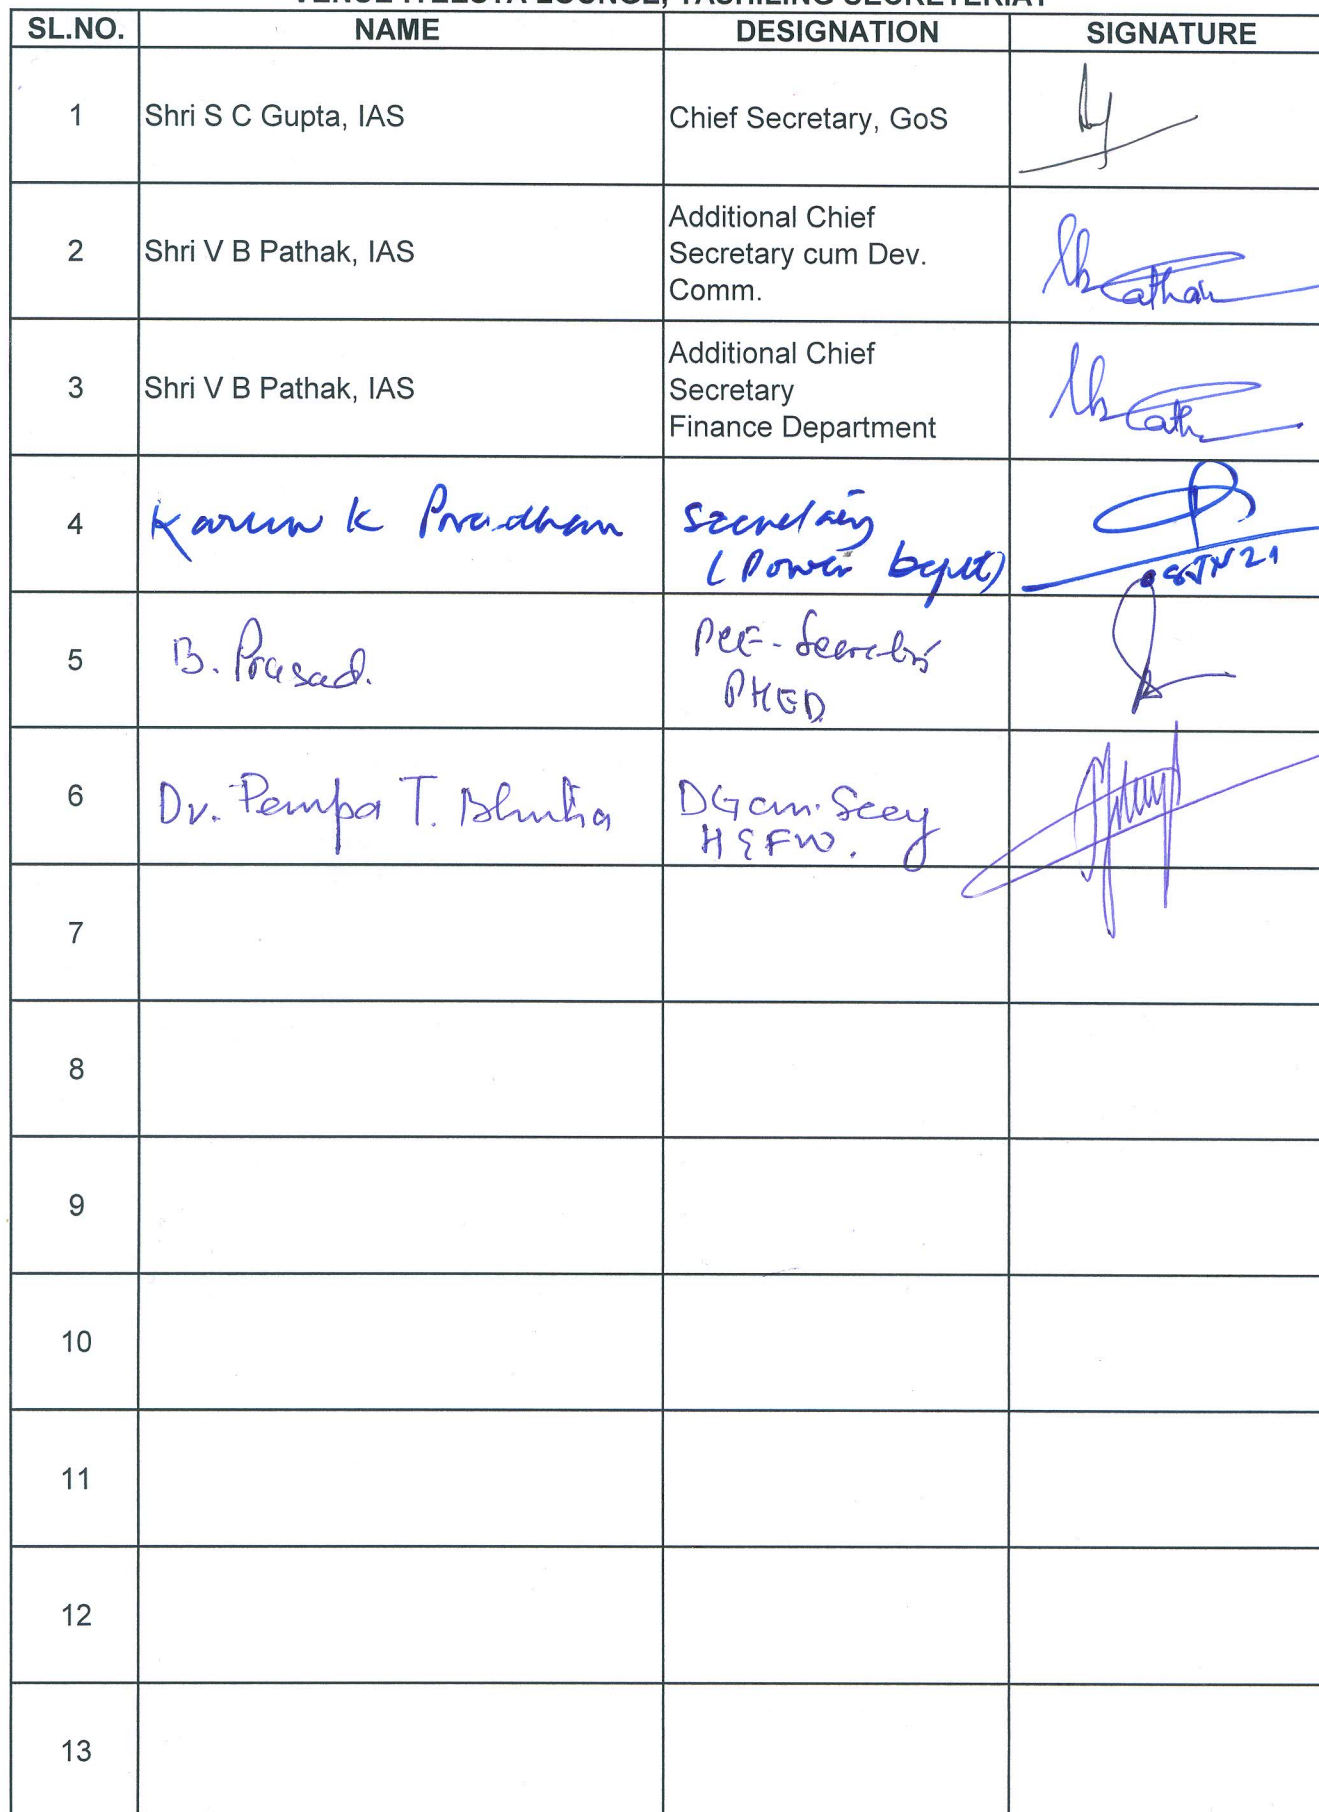 VENUE : TEESTA LOUNGE, TASHILING SECRETERIAT
SL.NO. NAME DESIGNATION SIGNATURE
1 Shri S C Gupta, IAS Chief Secretary, GoS
2 Shri V B Pathak, IAS Additional Chief
Secretary cum Dev.
Comm.
3 Shri V B Pathak, IAS Additional Chief
Secretary
Finance Department
4 Karun K Pradhan Secretary
(Power Deptt)
5 B. Prasad. PCE-Secretary
PHED
6 Dr. Pempa T. Bhutia DG cum. Secy
H & FW.
7
8
9
10
11
12
13